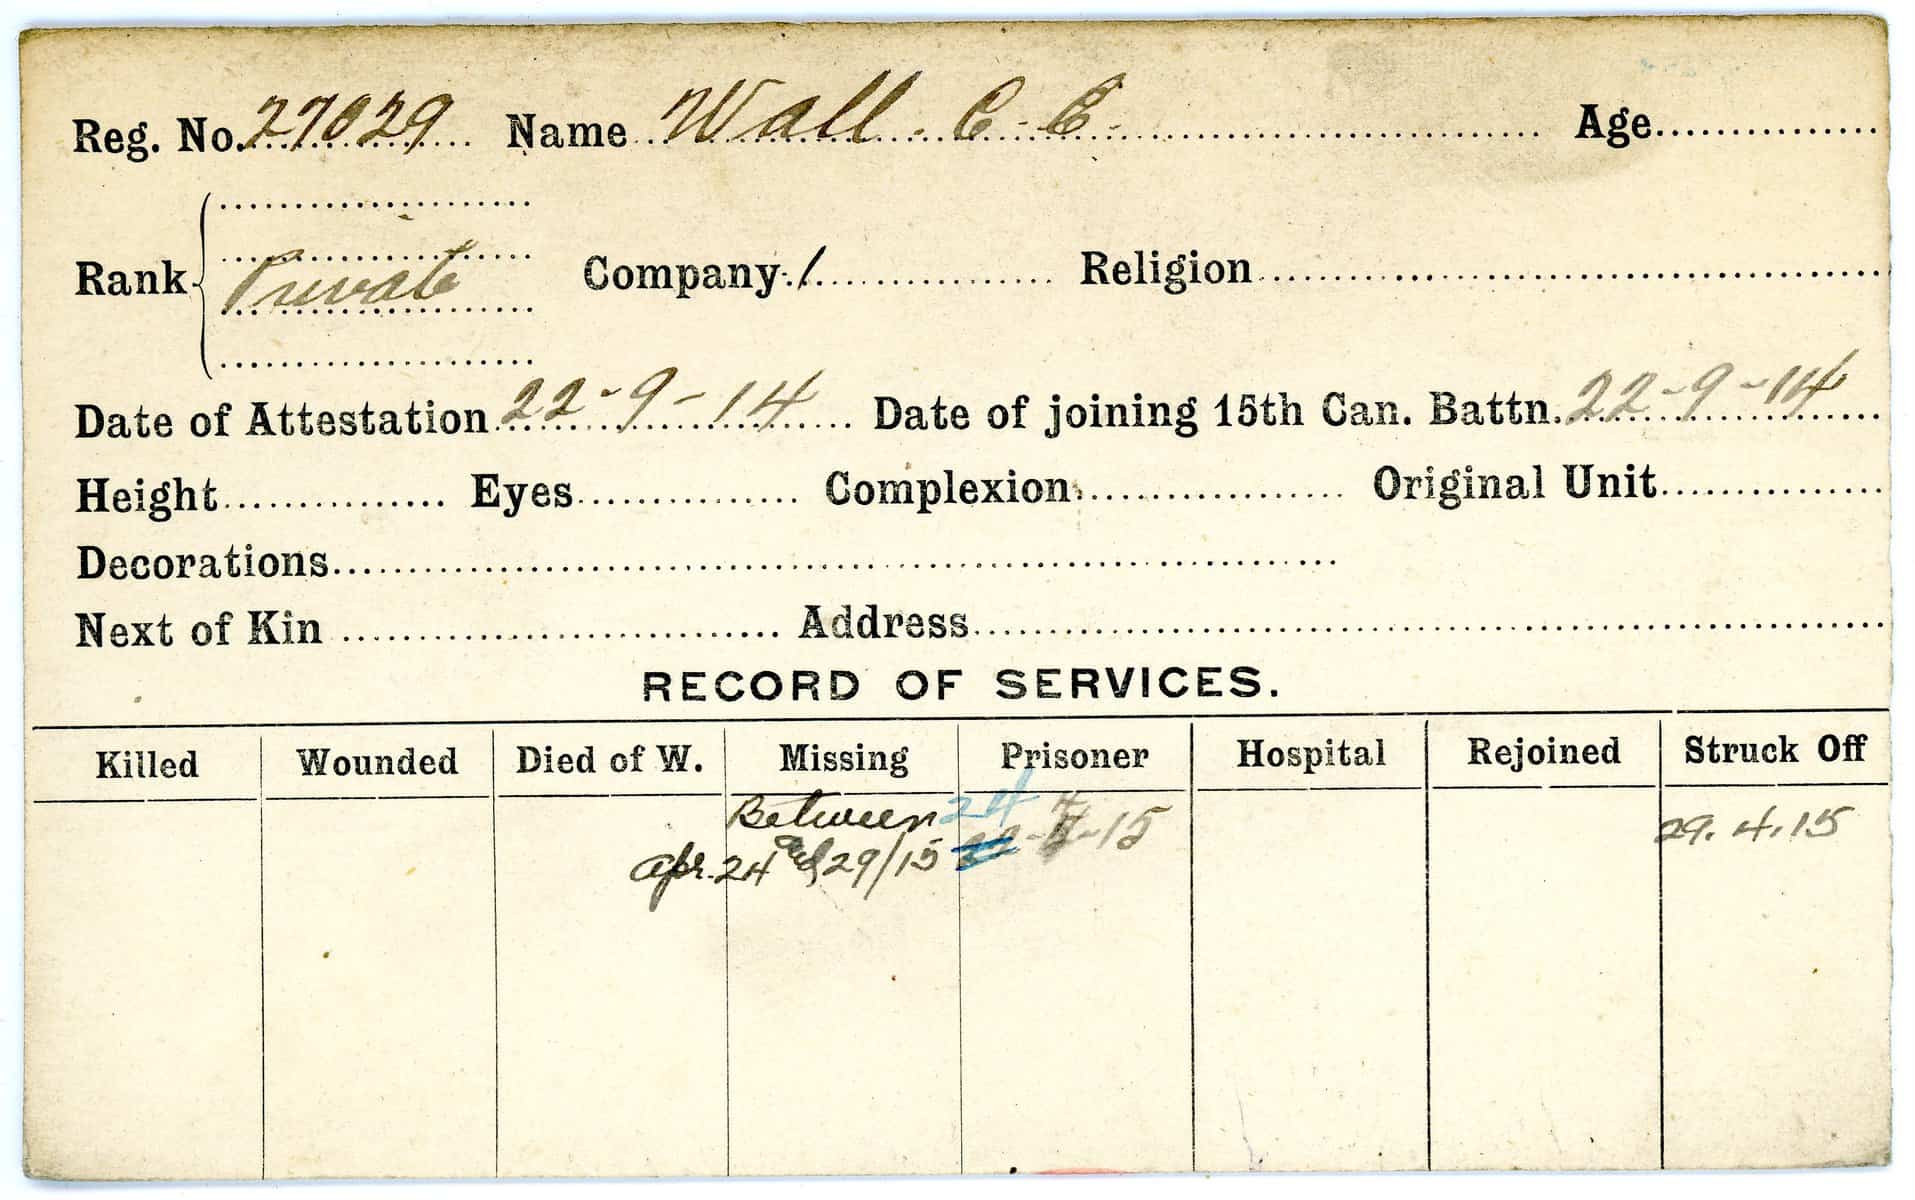 Reg. No. 27029 Name Wall. C. E. Age
Rank Private Company 1 Religion
Date of Attestation 22-9-14 Date of joining 15th Can. Battn. 22-9-14
Height Eyes Complexion Original Unit
Decorations
Next of Kin Address
RECORD OF SERVICES.
Killed Wounded Died of W. Missing Prisoner Hospital Rejoined Struck Off
Between 24 4 29.4.15
Apr. 24 and 29/15 22 - -15